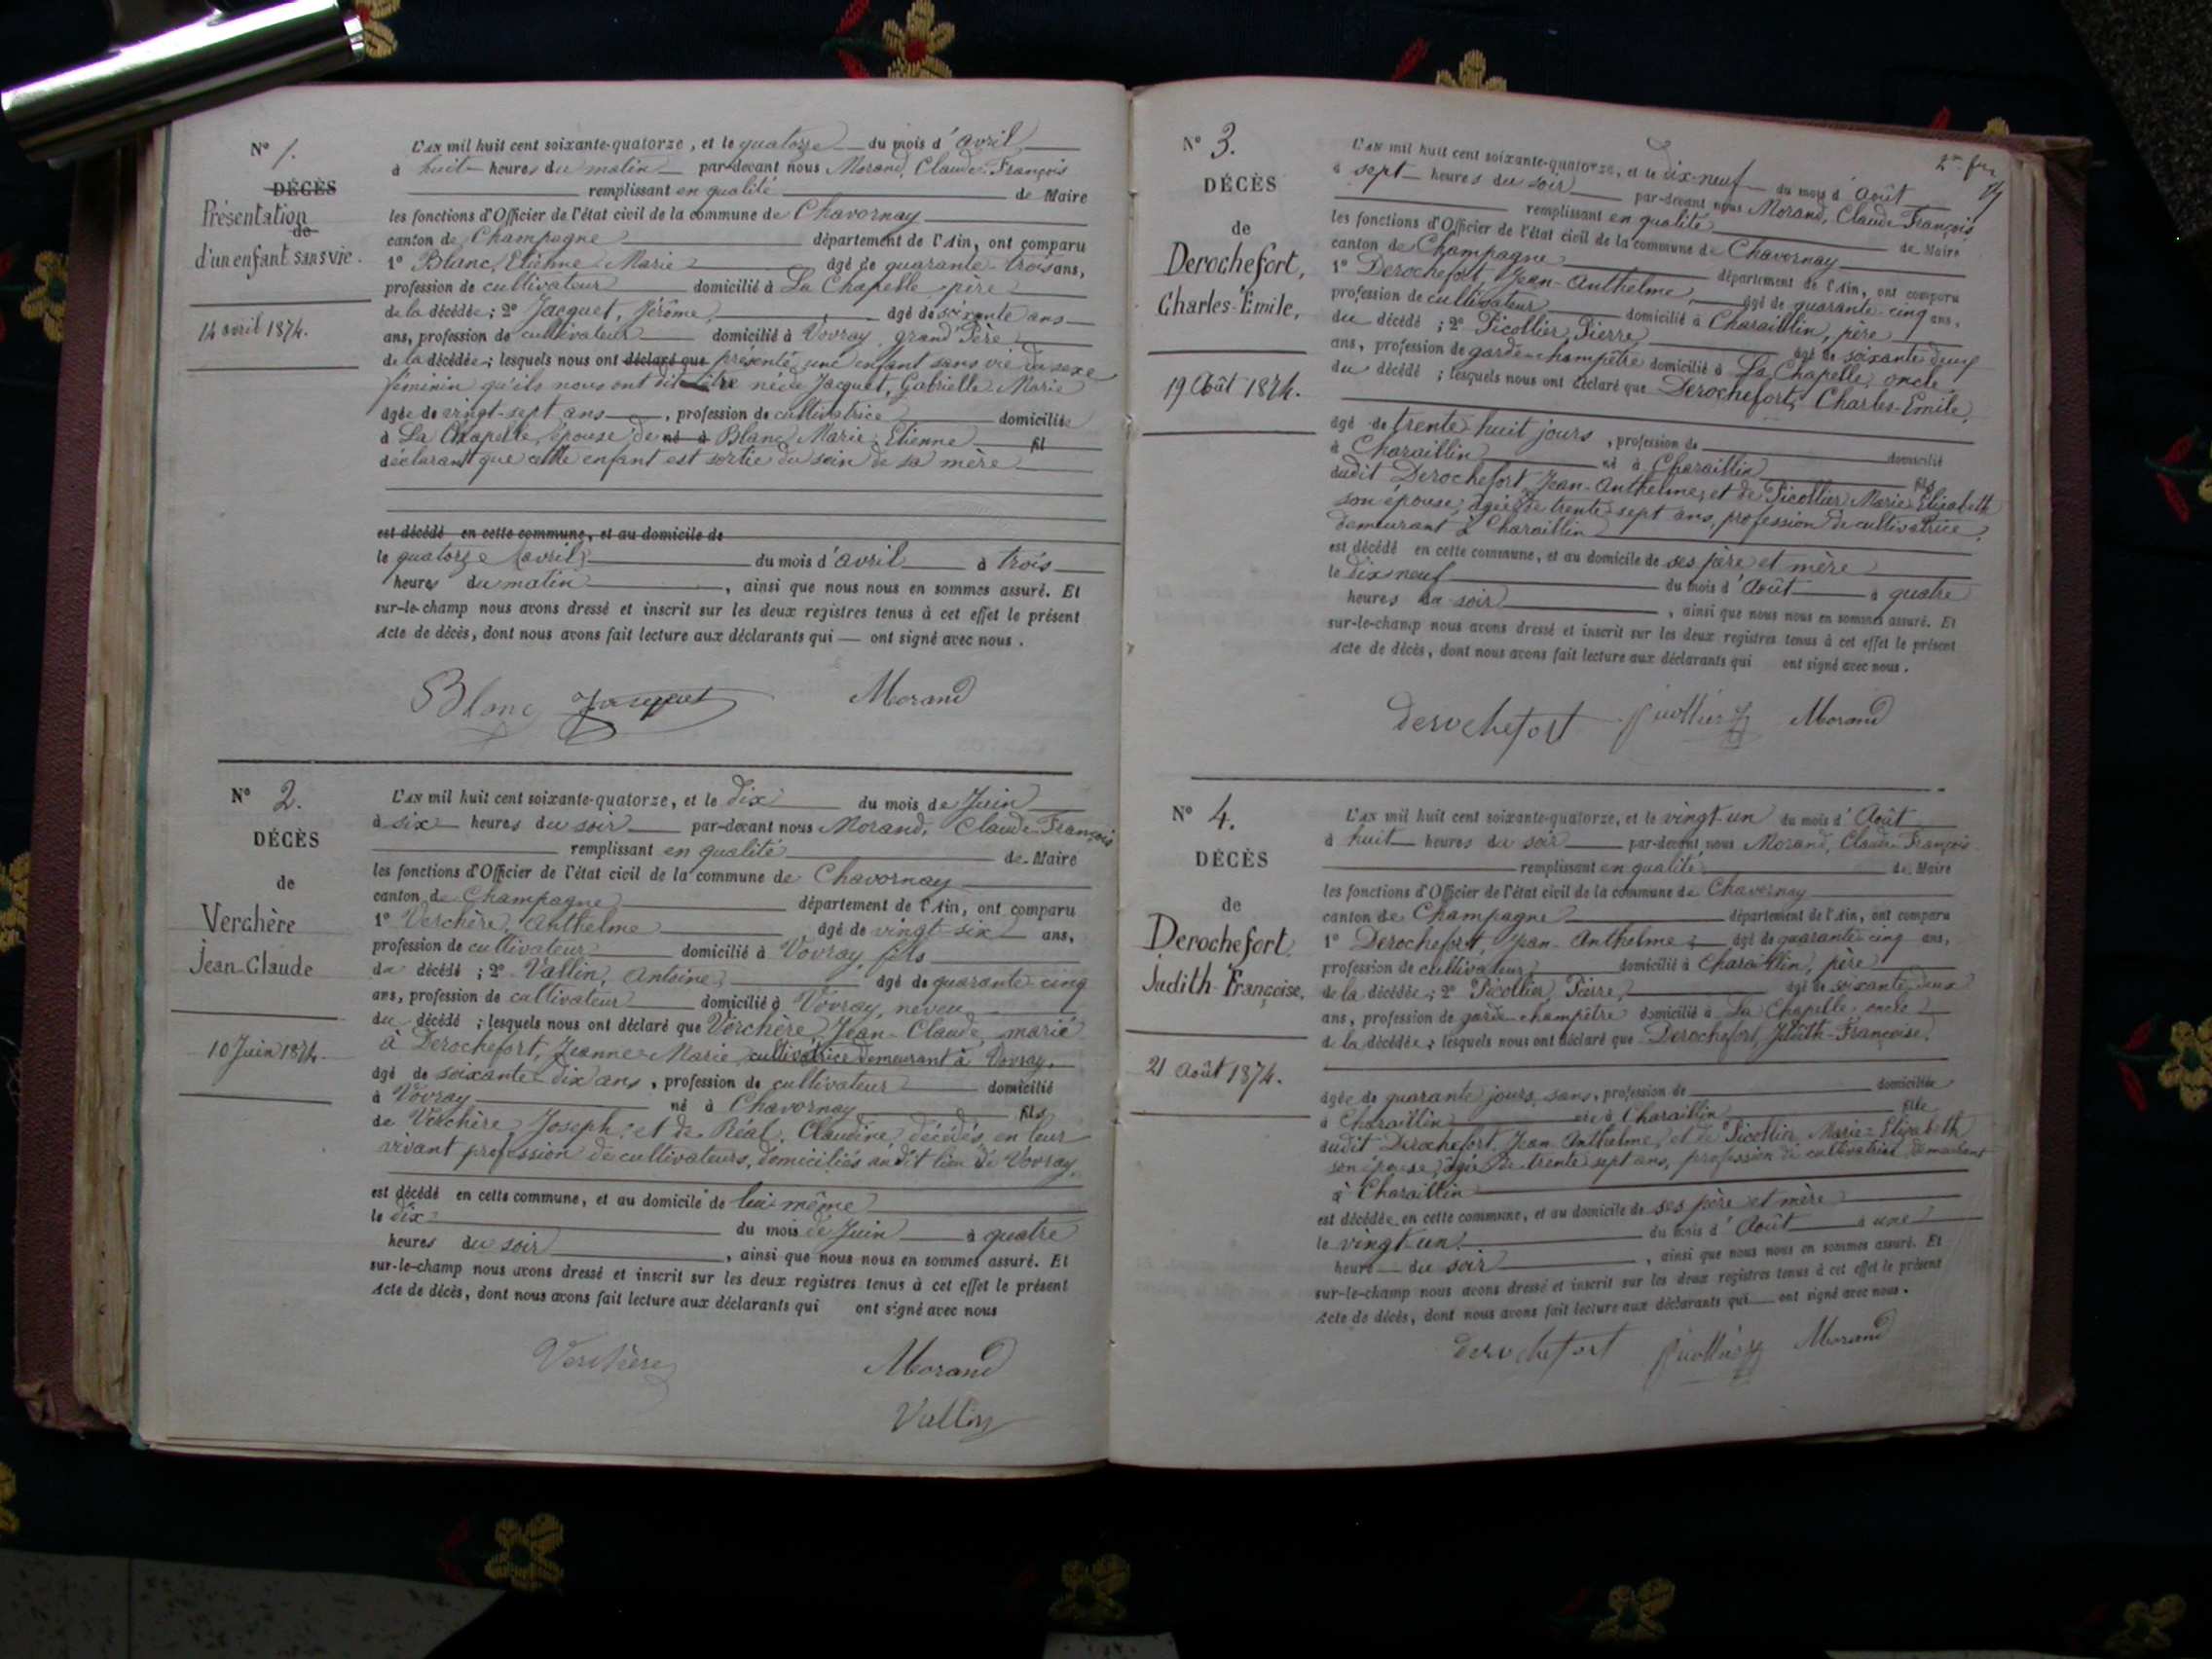 N° 1.
DÉCÈS
Présentation
de
d'un enfant sans vie.
14 avril 1874.
L'AN mil huit cent soixante-quatorze, et le quatorze du mois d'avril
à huit heures du matin par-devant nous Morand, Claude-François
remplissant en qualité de Maire
les fonctions d'Officier de l'état civil de la commune de Chavornay
canton de Champagne département de l'Ain, ont comparu
1° Blanc, Etienne Marie âgé de quarante-trois ans,
profession de cultivateur domicilié à La Chapelle, père
de la décédée; 2° Jacquet, Jérôme, âgé de soixante ans
ans, profession de cultivateur domicilié à Vovray, grand Père
de la décédée; lesquels nous ont déclaré que présenté une enfant sans vie du sexe
féminin qu'ils nous ont dit être née de Jacquet, Gabrielle Marie
âgée de vingt-sept ans, profession de cultivatrice domiciliée
à La Chapelle, épouse de né à Blanc Marie Etienne fil
déclarant que cette enfant est sortie du sein de sa mère
est décédé en cette commune, et au domicile de
le quatorze (avril) du mois d'avril à trois
heures du matin, ainsi que nous nous en sommes assuré. Et
sur-le-champ nous avons dressé et inscrit sur les deux registres tenus à cet effet le présent
Acte de décès, dont nous avons fait lecture aux déclarants qui — ont signé avec nous.
Blanc Jacquet Morand
N° 2.
DÉCÈS
de
Verchère
Jean-Claude
10 Juin 1874.
L'AN mil huit cent soixante-quatorze, et le dix du mois de Juin
à six heures du soir par-devant nous Morand, Claude-François
remplissant en qualité de Maire
les fonctions d'Officier de l'état civil de la commune de Chavornay
canton de Champagne département de l'Ain, ont comparu
1° Verchère, Anthelme âgé de vingt-six ans,
profession de cultivateur domicilié à Vovray, fils
du décédé; 2° Vallin, Antoine, âgé de quarante-cinq
ans, profession de cultivateur domicilié à Vovray, neveu
du décédé; lesquels nous ont déclaré que Verchère, Jean-Claude, marié
à Derochefort, Jeanne-Marie, cultivatrice demeurant à Vovray,
âgé de soixante-dix ans, profession de cultivateur domicilié
à Vovray né à Chavornay fils
de Verchère, Joseph, et de Réal, Claudine, décédés, en leur
vivant profession de cultivateurs, domiciliés audit lieu de Vovray,
est décédé en cette commune, et au domicile de lui-même
le dix du mois de Juin à quatre
heures du soir, ainsi que nous nous en sommes assuré. Et
sur-le-champ nous avons dressé et inscrit sur les deux registres tenus à cet effet le présent
Acte de décès, dont nous avons fait lecture aux déclarants qui ont signé avec nous
Verchère Morand
Vallin
2me
N° 3.
DÉCÈS
de
Derochefort,
Charles-Emile,
19 Août 1874.
L'AN mil huit cent soixante-quatorze, et le dix-neuf du mois d'Août
à sept heures du soir par-devant nous Morand, Claude-François
remplissant en qualité de Maire
les fonctions d'Officier de l'état civil de la commune de Chavornay
canton de Champagne département de l'Ain, ont comparu
1° Derochefort, Jean-Anthelme, âgé de quarante-cinq ans,
profession de cultivateur domicilié à Charaillin, père
du décédé; 2° Picollier, Pierre, âgé de soixante-deux
ans, profession de garde-champêtre domicilié à La Chapelle, oncle
du décédé; lesquels nous ont déclaré que Derochefort, Charles-Emile,
âgé de trente-huit jours, profession de domicilié
à Charaillin né à Charaillin fils
dudit Derochefort, Jean-Anthelme, et de Picollier Marie-Elisabeth
son épouse, âgée de trente-sept ans, profession de cultivatrice,
demeurant à Charaillin
est décédé en cette commune, et au domicile de ses père et mère
le dix-neuf du mois d'Août à quatre
heures du soir, ainsi que nous nous en sommes assuré. Et
sur-le-champ nous avons dressé et inscrit sur les deux registres tenus à cet effet le présent
Acte de décès, dont nous avons fait lecture aux déclarants qui ont signé avec nous.
derochefort picollier Morand
N° 4.
DÉCÈS
de
Derochefort
Judith-Françoise,
21 Août 1874.
L'AN mil huit cent soixante-quatorze, et le vingt-un du mois d'Août
à huit heures du soir par-devant nous Morand, Claude-François
remplissant en qualité de Maire
les fonctions d'Officier de l'état civil de la commune de Chavornay
canton de Champagne département de l'Ain, ont comparu
1° Derochefort, Jean-Anthelme, âgé de quarante-cinq ans,
profession de cultivateur domicilié à Charaillin, père
de la décédée; 2° Picollier, Pierre, âgé de soixante-deux
ans, profession de garde-champêtre domicilié à La Chapelle, oncle
de la décédée; lesquels nous ont déclaré que Derochefort, Judith-Françoise,
âgée de quarante jours, sans, profession de domiciliée
à Charaillin née à Charaillin fille
dudit Derochefort, Jean-Anthelme, et de Picollier, Marie-Elisabeth
son épouse, âgée de trente-sept ans, profession de cultivatrice, demeurant
à Charaillin
est décédée en cette commune, et au domicile de ses père et mère
le vingt-un du mois d'Août à une
heure du soir, ainsi que nous nous en sommes assuré. Et
sur-le-champ nous avons dressé et inscrit sur les deux registres tenus à cet effet le présent
Acte de décès, dont nous avons fait lecture aux déclarants qui ont signé avec nous.
derochefort picollier Morand